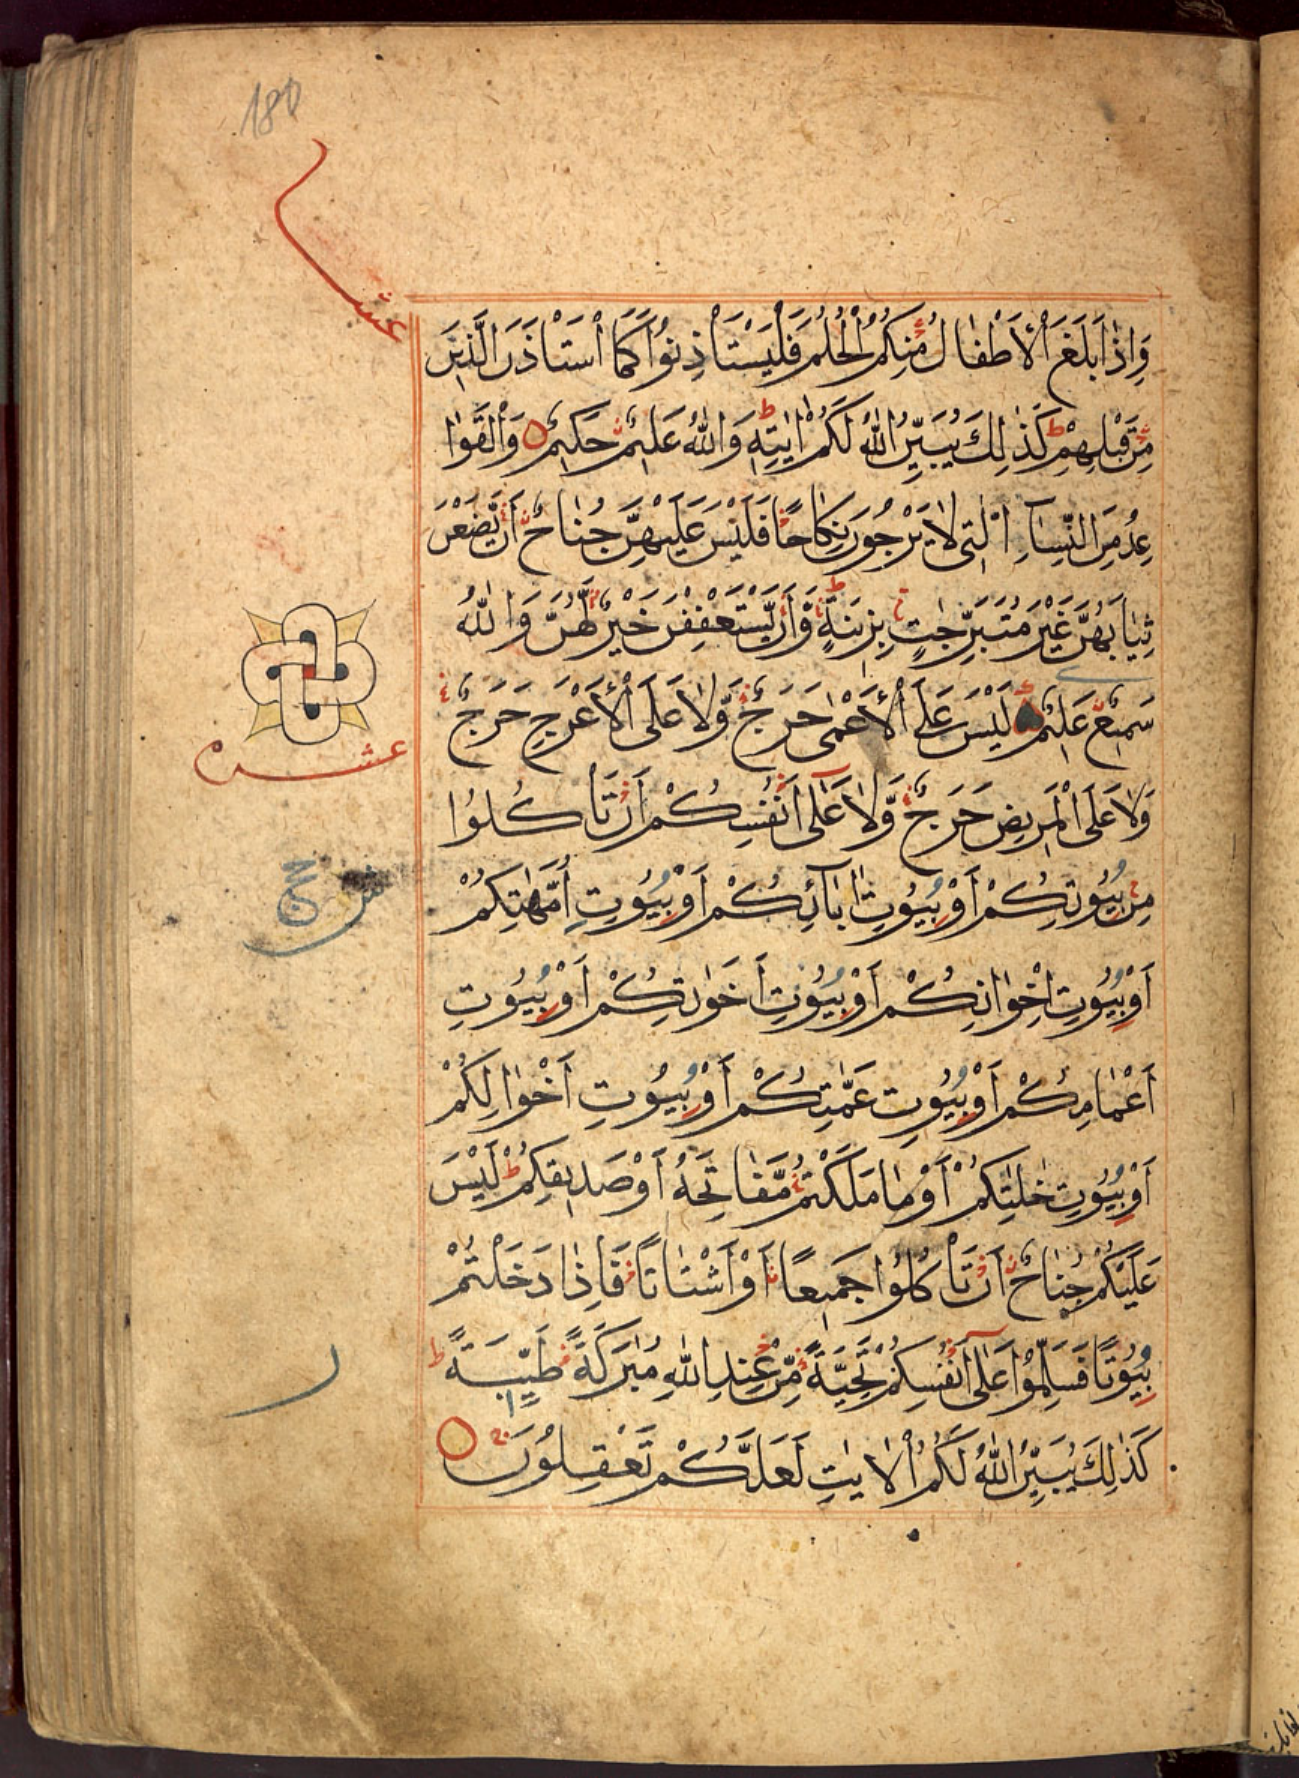 180
عشر
وَاِذَا بَلَغَ الْاَطْفَالُ مِنْكُمُ الْحُلُمَ فَلْيَسْتَاْذِنُوْا كَمَا اسْتَاْذَنَ الَّذِيْنَ
مِنْ قَبْلِهِمْ ط كَذٰلِكَ يُبَيِّنُ اللّٰهُ لَكُمْ اٰيٰتِهٖ ط وَاللّٰهُ عَلِيْمٌ حَكِيْمٌ وَالْقَوَا
عِدُ مِنَ النِّسَآءِ الّٰتِىْ لَا يَرْجُوْنَ نِكَاحًا فَلَيْسَ عَلَيْهِنَّ جُنَاحٌ اَنْ يَّضَعْنَ
ثِيَابَهُنَّ غَيْرَ مُتَبَرِّجٰتٍ بِزِيْنَةٍ ط وَّاَنْ يَّسْتَعْفِفْنَ خَيْرٌ لَّهُنَّ وَاللّٰهُ
سَمِيْعٌ عَلِيْمٌ لَيْسَ عَلَى الْاَعْمٰى حَرَجٌ وَّلَا عَلَى الْاَعْرَجِ حَرَجٌ
عشره
وَلَا عَلَى الْمَرِيْضِ حَرَجٌ وَّلَا عَلٰى اَنْفُسِكُمْ اَنْ تَاْكُلُوْا
مِنْ بُيُوْتِكُمْ اَوْ بُيُوْتِ اٰبَآئِكُمْ اَوْ بُيُوْتِ اُمَّهٰتِكُمْ
اَوْ بُيُوْتِ اِخْوَانِكُمْ اَوْ بُيُوْتِ اَخَوٰتِكُمْ اَوْ بُيُوْتِ
اَعْمَامِكُمْ اَوْ بُيُوْتِ عَمّٰتِكُمْ اَوْ بُيُوْتِ اَخْوَالِكُمْ
اَوْ بُيُوْتِ خٰلٰتِكُمْ اَوْ مَا مَلَكْتُمْ مَّفَاتِحَهٗ اَوْ صَدِيْقِكُمْ ط لَيْسَ
عَلَيْكُمْ جُنَاحٌ اَنْ تَاْكُلُوْا جَمِيْعًا اَوْ اَشْتَاتًا فَاِذَا دَخَلْتُمْ
بُيُوْتًا فَسَلِّمُوْا عَلٰى اَنْفُسِكُمْ تَحِيَّةً مِّنْ عِنْدِ اللّٰهِ مُبٰرَكَةً طَيِّبَةً ط
كَذٰلِكَ يُبَيِّنُ اللّٰهُ لَكُمُ الْاٰيٰتِ لَعَلَّكُمْ تَعْقِلُوْنَ